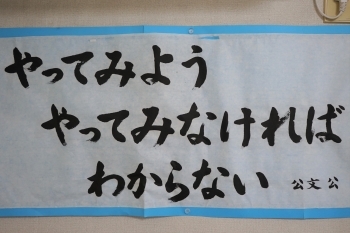 やってみよう
やってみなければ
わからない 公文 公